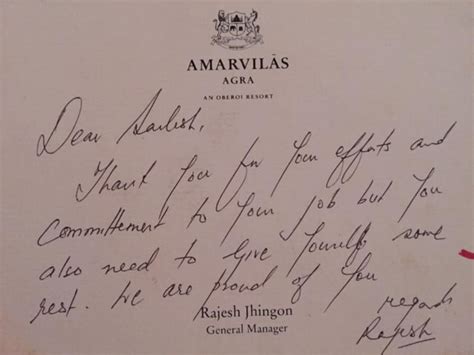 AMARVILĀS
AGRA
AN OBEROI RESORT
Dear
Thank You for Your efforts and
Committement to Your job but You
also need to Give Yourself some
rest. We are proud of You
Rajesh Jhingon
General Manager
regards
Rajesh